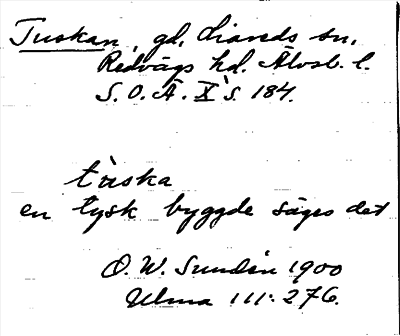 Tuskan, gd. Liareds sn.
Redvägs hd. Älvsb. l.
S. O. Ä. X s. 184.
tùska
en tysk byggde säges det
O. W. Sundén 1900
Ulma 111:276.